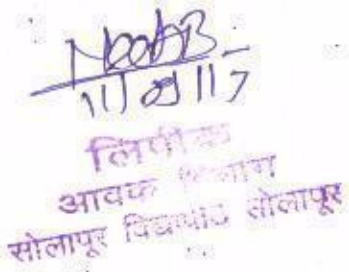 11/09/17
लिपीक
आवक विभाग
सोलापूर विद्यापीठ सोलापूर